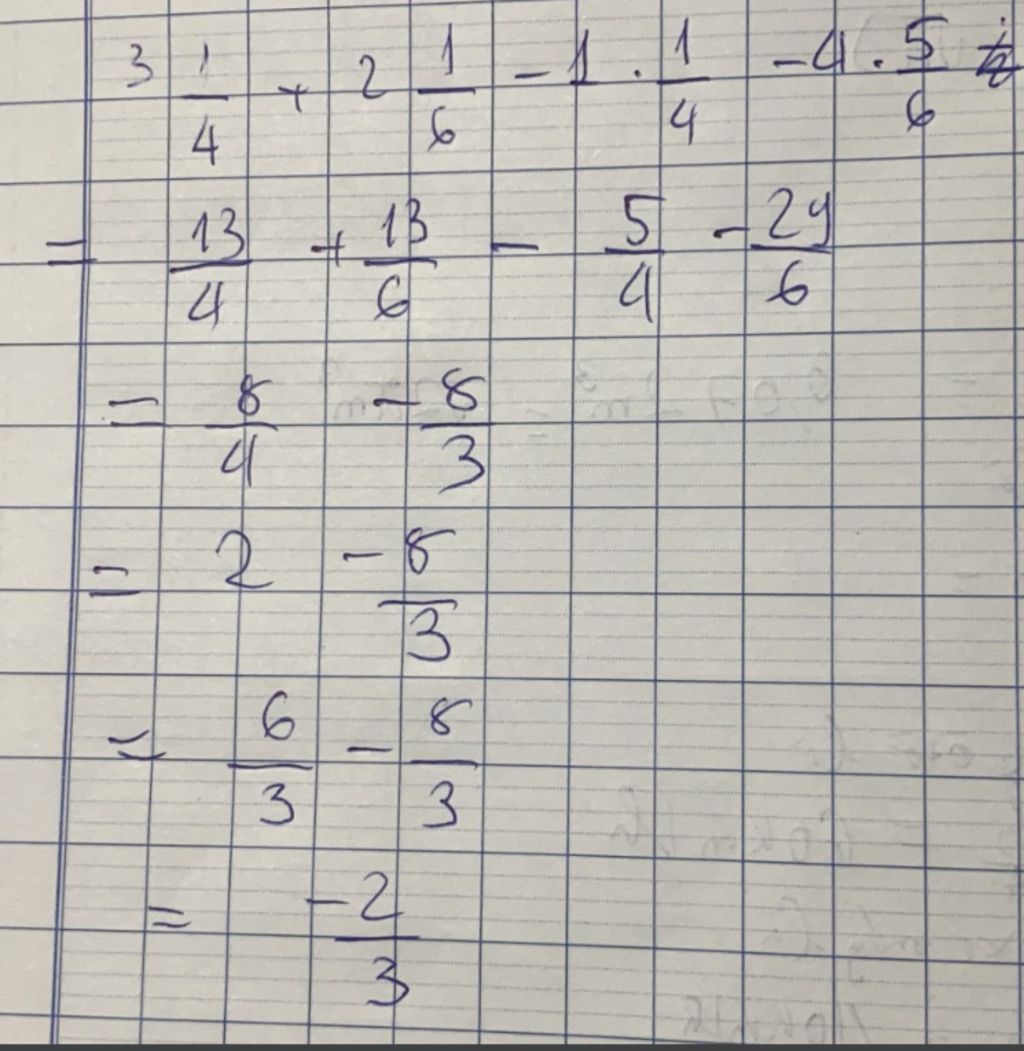 3 1/4 + 2 1/6 - 1 . 1/4 - 4 . 5/6
= 13/4 + 13/6 - 5/4 - 29/6
= 8/4 - 8/3
= 2 - 8/3
= 6/3 - 8/3
= -2/3